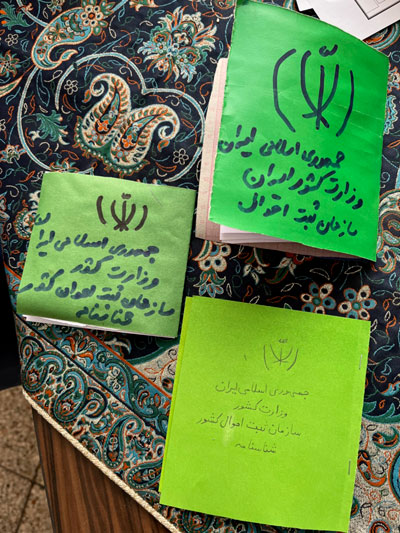 جمهوری اسلامی ایران
وزارت کشور ایران
سازمان ثبت احوال
جمهوری اسلامی ایرا
ن
وزارت کشور
سازمان ثبت احوال کشور
شناسنامه
جمهوری اسلامی ایران
وزارت کشور
سازمان ثبت احوال کشور
شناسنامه